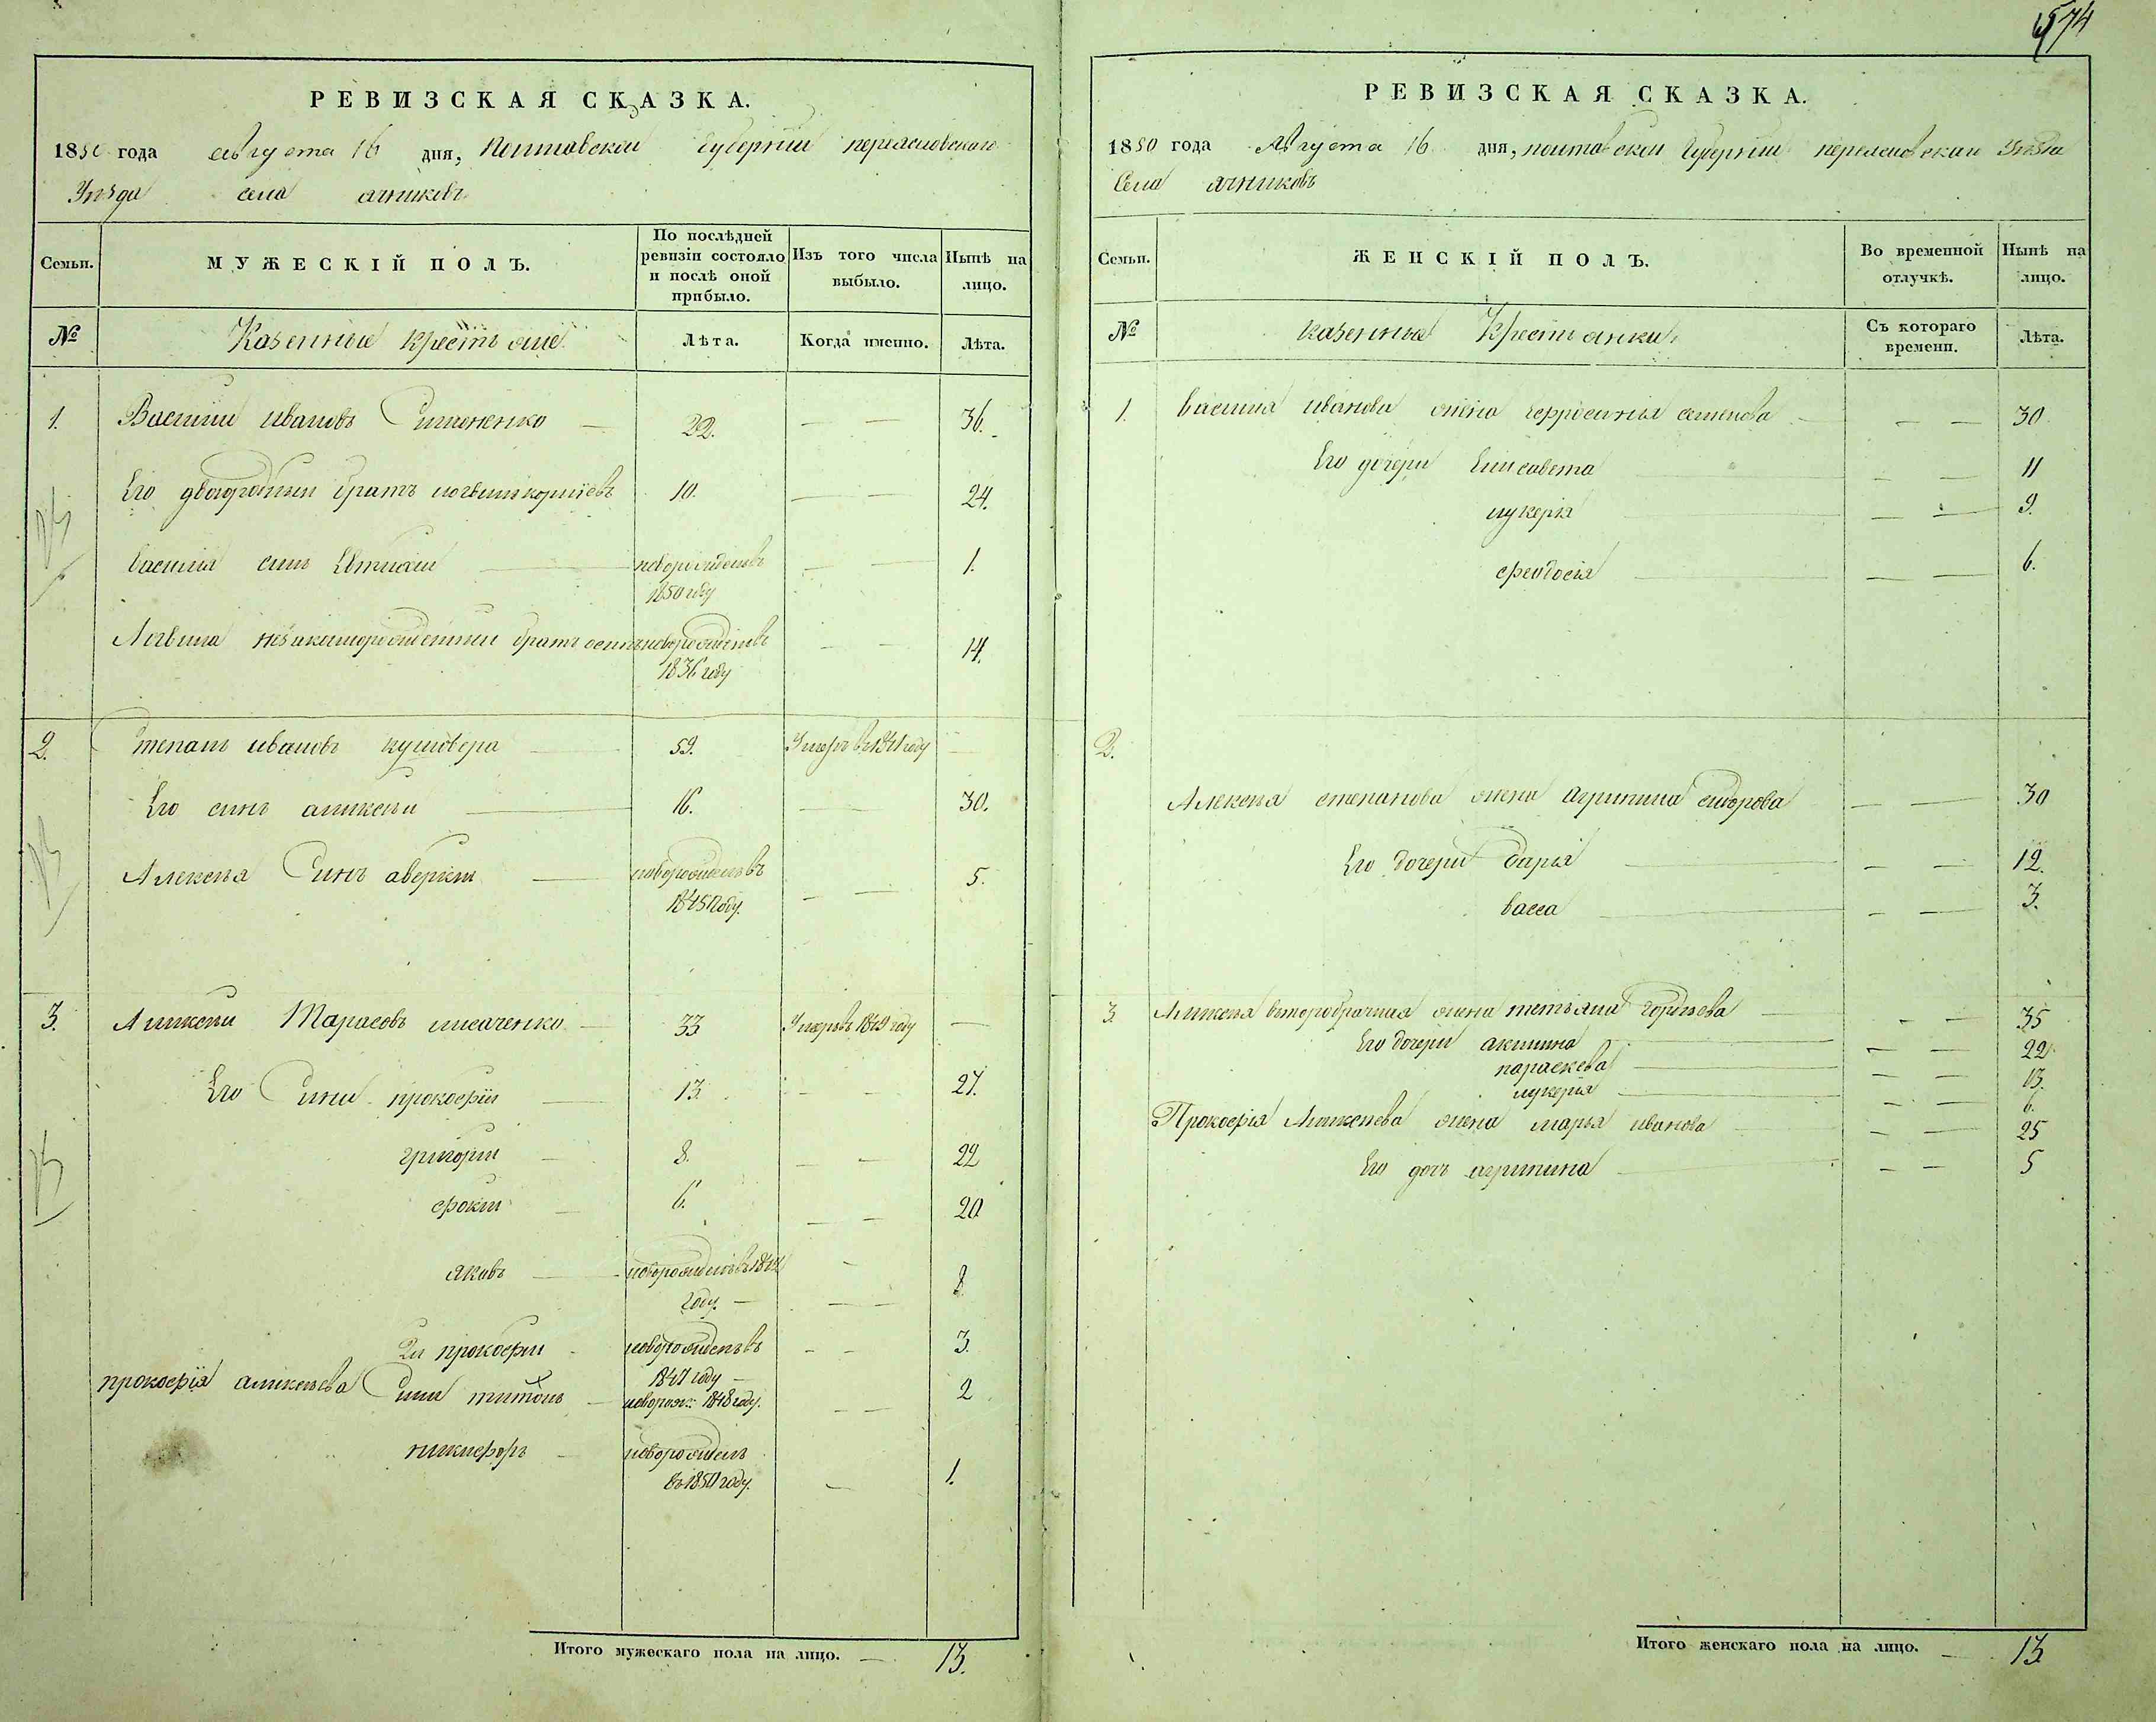 574
РЕВИЗСКАЯ СКАЗКА.
1850 года августа 16 дня, Полтавской Губернии переясловского
Уезда села ячников
Семьи. МУЖЕСКІЙ ПОЛЪ. По послѣдней ревизіи состояло и послѣ оной прибыло. Изъ того числа выбыло. Нынѣ на лицо.
№ Казенные крестьяне Лѣта. Когда именно. Лѣта.
1. Василий ивановъ Симоненко — 22. — — 36.
Его двоюродный братъ логвин корніевъ 10. — — 24.
василія син Евтихий новорожденъ въ 1850 году — — 1.
Логвина братъ новорожденъ въ 1836 году — — 14.
2. Степанъ ивановъ 59. Умеръ въ 1841 году —
Его синъ алексей 16. — 30.
Алексея Синъ аверкий новорожденъ въ 1845 году. — — 5.
3. Алексей Тарасовъ лисаченко 33 Умеръ въ 1849 году —
Его Сини прокофій 13. — — 27.
григорий 8. — — 22
фокий 6. — — 20
яковъ новорожденъ въ 1842 году. — — 8.
2й прокофий новорожденъ въ 1847 году — — 3.
прокофія алексеева Сини титонъ новорож: 1848 году. — — 2
никифоръ новорожденъ въ 1850 году. — 1.
Итого мужескаго пола на лицо. — 13.
РЕВИЗСКАЯ СКАЗКА.
1850 года Августа 16 дня, полтавской Губернии переясловскаго Уезда
Села ячниковъ
Семьи. ЖЕНСКІЙ ПОЛЪ. Во временной отлучкѣ. Нынѣ на лицо.
№ казенные Крестьянки Съ котораго времени. Лѣта.
1. василия иванова жена ефросиния семенова — — 30
Его дочери Елисавета — — 11
лукерія — — 9.
феодосія — — 6.
2.
Алексея степанова жена агрипина сидорова — — 30
Его дочери дарья — — 12.
васса — — 3.
3. Алексея второбрачная жена тетьяна гордеева — — 35
Его дочери акилина — — 22
параскева — — 13.
лукерья — — 6.
Прокофія Алексеева жена марья иванова — — 25
Его дочь агрипина — — 5
Итого женскаго пола на лицо. — 13.